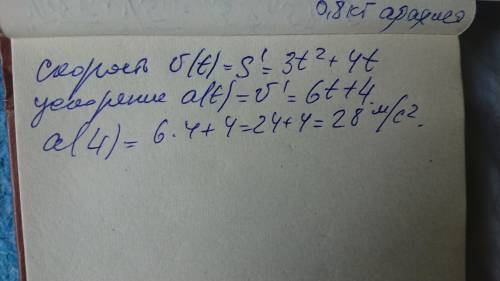 0,8 кг
скорость υ(t) = S' = 3t² + 4t
ускорение a(t) = υ' = 6t + 4
a(4) = 6·4 + 4 = 24 + 4 = 28 м/с².